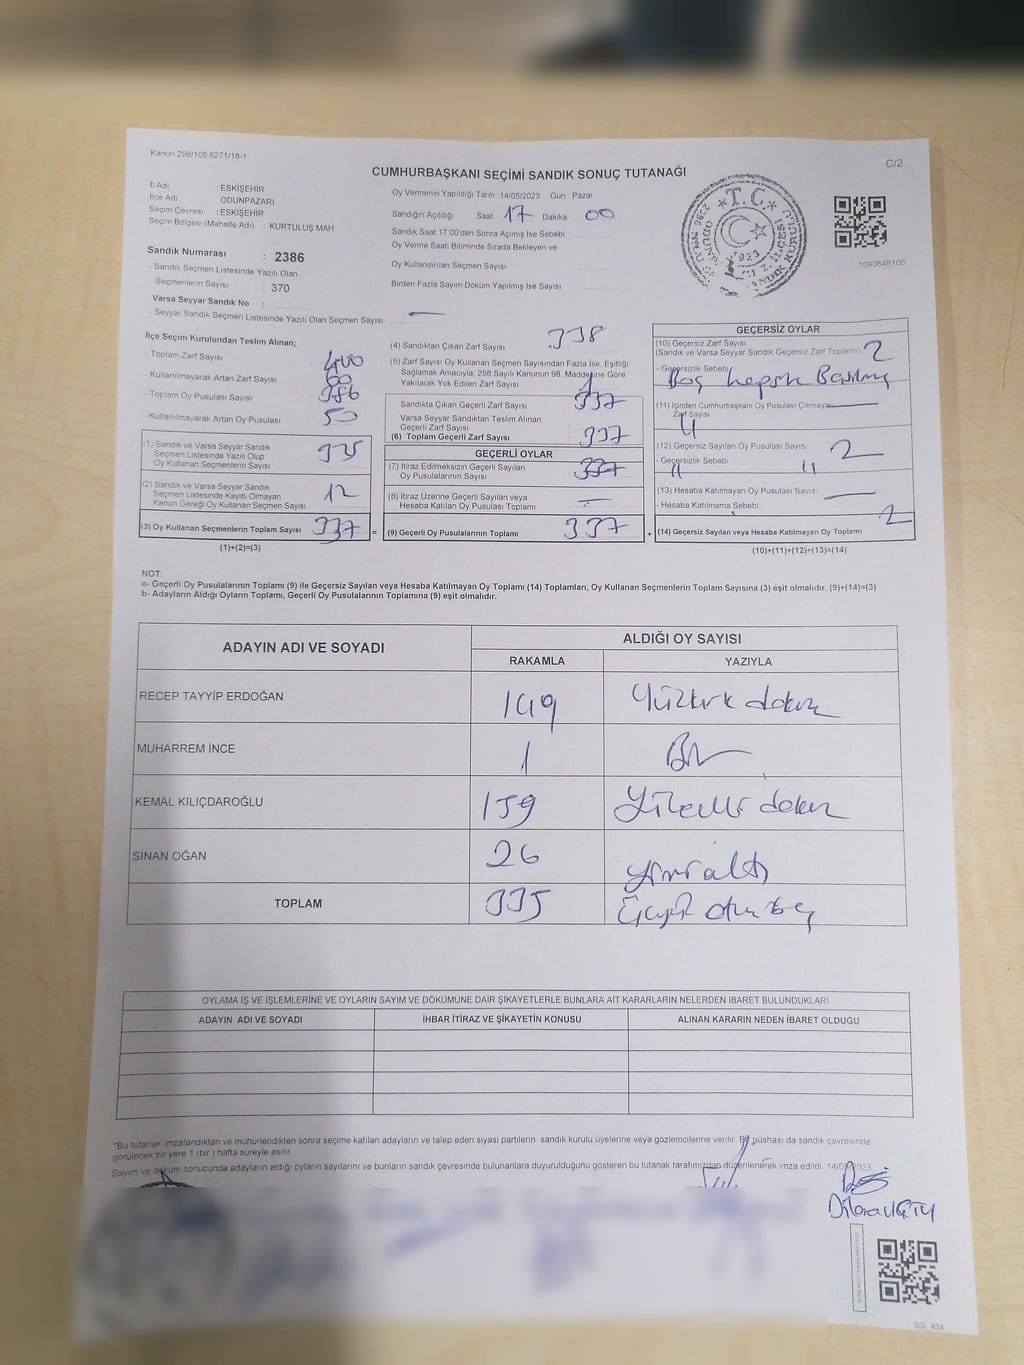 Kanun 298/105 6271/18-1
C/2
CUMHURBAŞKANI SEÇİMİ SANDIK SONUÇ TUTANAĞI
İl Adı ESKİŞEHİR
İlçe Adı ODUNPAZARI
Seçim Çevresi :ESKİŞEHİR
Seçim Bölgesi (Mahalle Adı) : KURTULUŞ MAH
Sandık Numarası : 2386
- Sandık Seçmen Listesinde Yazılı Olan
Seçmenlerin Sayısı : 370
Varsa Seyyar Sandık No :
- Seyyar Sandık Seçmen Listesinde Yazılı Olan Seçmen Sayısı :
Oy Vermenin Yapıldığı Tarih :14/05/2023 Gün : Pazar
Sandığın Açıldığı Saat 17 Dakika 00
Sandık Saat 17:00'den Sonra Açılmış İse Sebebi
Oy Verme Saati Bitiminde Sırada Bekleyen ve
Oy Kullandırılan Seçmen Sayısı
Birden Fazla Sayım Döküm Yapılmış İse Sayısı
T.C.
1923
1093648106
İlçe Seçim Kurulundan Teslim Alınan;
- Toplam Zarf Sayısı 400
- Kullanılmayarak Artan Zarf Sayısı 60
- Toplam Oy Pusulası Sayısı 386
- Kullanılmayarak Artan Oy Pusulası 50
(1) Sandık ve Varsa Seyyar Sandık
Seçmen Listesinde Yazılı Olup
Oy Kullanan Seçmenlerin Sayısı 325
(2) Sandık ve Varsa Seyyar Sandık
Seçmen Listesinde Kayıtlı Olmayan
Kanun Gereği Oy Kullanan Seçmen Sayısı 12
(3) Oy Kullanan Seçmenlerin Toplam Sayısı 337 =
(1)+(2)=(3)
(4) Sandıktan Çıkan Zarf Sayısı 338
(5) Zarf Sayısı Oy Kullanan Seçmen Sayısından Fazla İse, Eşitliği
Sağlamak Amacıyla, 298 Sayılı Kanunun 98. Maddesine Göre
Yakılarak Yok Edilen Zarf Sayısı 1
Sandıkta Çıkan Geçerli Zarf Sayısı 337
Varsa Seyyar Sandıktan Teslim Alınan
Geçerli Zarf Sayısı
(6) Toplam Geçerli Zarf Sayısı 337
GEÇERLİ OYLAR
(7) İtiraz Edilmeksizin Geçerli Sayılan
Oy Pusulalarının Sayısı 337
(8) İtiraz Üzerine Geçerli Sayılan veya
Hesaba Katılan Oy Pusulası Toplamı
(9) Geçerli Oy Pusulalarının Toplamı 337 +
GEÇERSİZ OYLAR
(10) Geçersiz Zarf Sayısı
(Sandık ve Varsa Seyyar Sandık Geçersiz Zarf Toplamı) 2
- Geçersizlik Sebebi
Boş
(11) İçinden Cumhurbaşkanı Oy Pusulası Çıkmayan
Zarf Sayısı
(12) Geçersiz Sayılan Oy Pusulası Sayısı 2
- Geçersizlik Sebebi
(13) Hesaba Katılmayan Oy Pusulası Sayısı
- Hesaba Katılmama Sebebi
(14) Geçersiz Sayılan veya Hesaba Katılmayan Oy Toplamı 2
(10)+(11)+(12)+(13)=(14)
NOT:
a- Geçerli Oy Pusulalarının Toplamı (9) ile Geçersiz Sayılan veya Hesaba Katılmayan Oy Toplamı (14) Toplamları, Oy Kullanan Seçmenlerin Toplam Sayısına (3) eşit olmalıdır. (9)+(14)=(3)
b- Adayların Aldığı Oyların Toplamı, Geçerli Oy Pusulalarının Toplamına (9) eşit olmalıdır.
ADAYIN ADI VE SOYADI
ALDIĞI OY SAYISI
RAKAMLA YAZIYLA
RECEP TAYYİP ERDOĞAN 149 Yüzkırk dokuz
MUHARREM İNCE 1 Bir
KEMAL KILIÇDAROĞLU 159 Yüzelli dokuz
SİNAN OĞAN 26 yirmi altı
TOPLAM 335 Üçyüz otuz beş
OYLAMA İŞ VE İŞLEMLERİNE VE OYLARIN SAYIM VE DÖKÜMÜNE DAİR ŞİKAYETLERLE BUNLARA AİT KARARLARIN NELERDEN İBARET BULUNDUKLARI
ADAYIN ADI VE SOYADI İHBAR İTİRAZ VE ŞİKAYETİN KONUSU ALINAN KARARIN NEDEN İBARET OLDUĞU
*Bu tutanak imzalandıktan ve mühürlendikten sonra seçime katılan adayların ve talep eden siyasi partilerin sandık kurulu üyelerine veya gözlemcilerine verilir. Bir nüshası da sandık çevresinde
görülecek bir yere 1 (bir) hafta süreyle asılır.
Sayım ve döküm sonucunda adayların aldığı oyların sayılarını ve bunların sandık çevresinde bulunanlara duyurulduğunu gösteren bu tutanak tarafımızdan düzenlenerek imza edildi. 14/05/2023